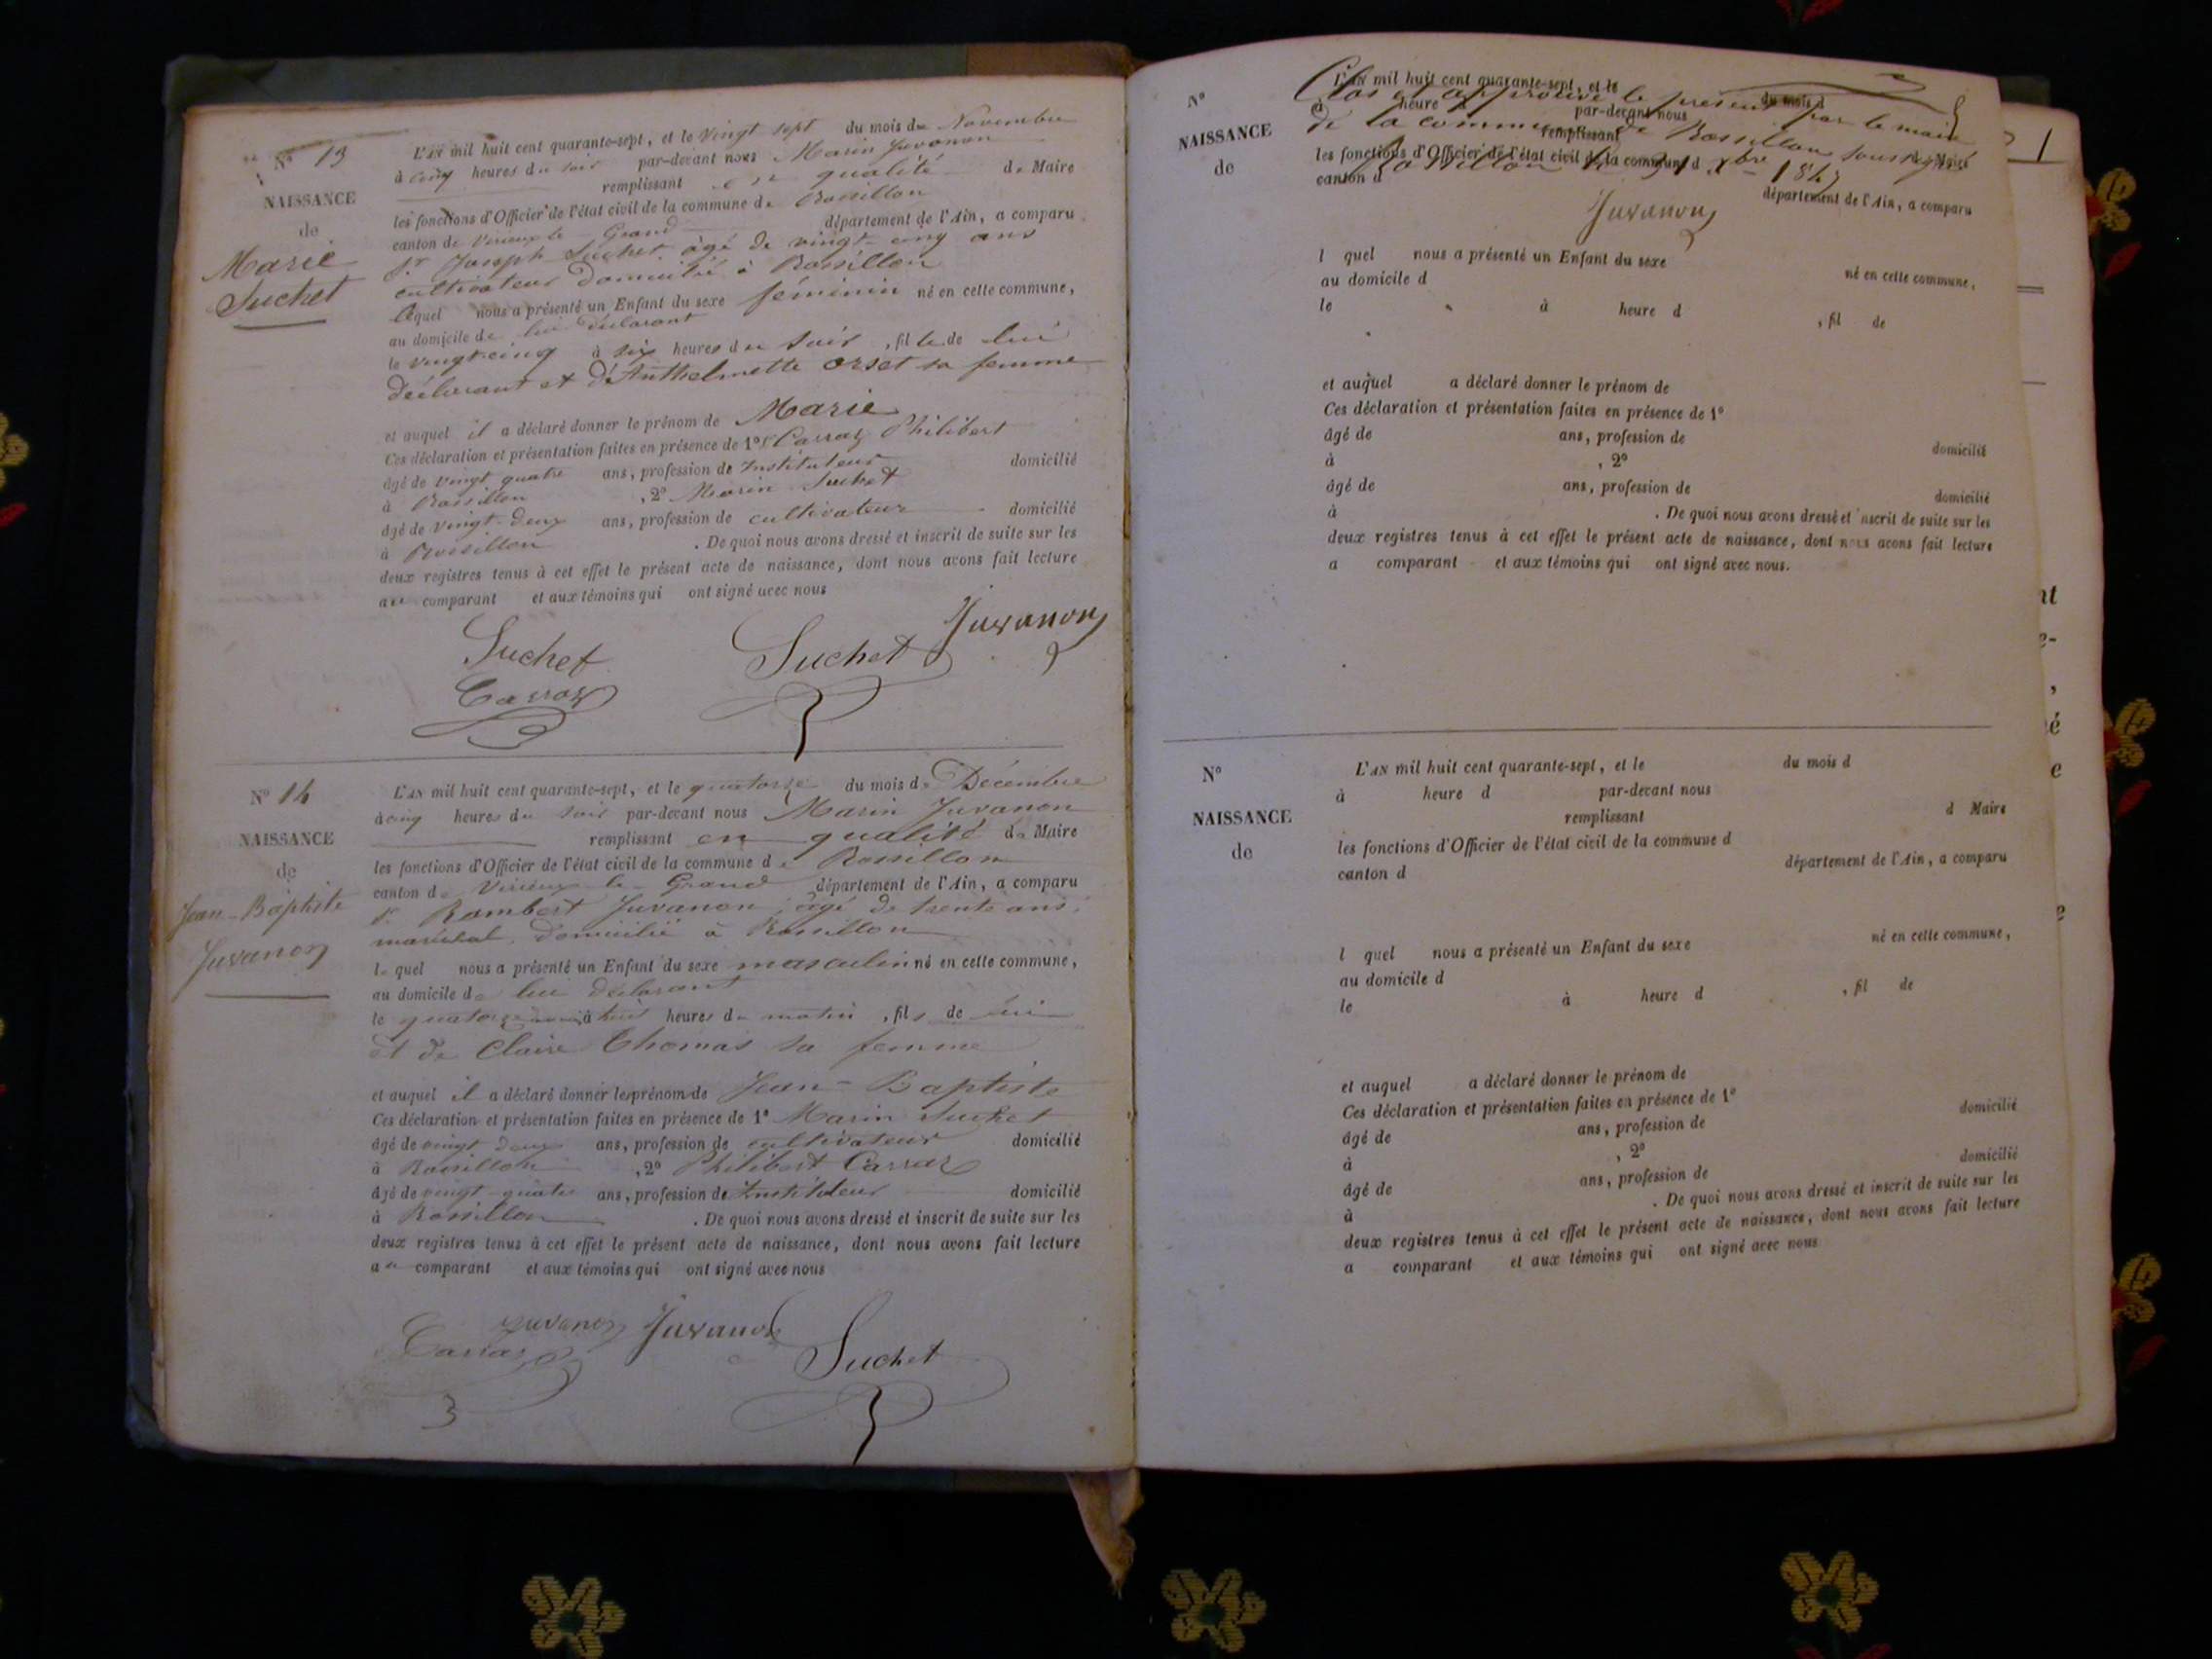 N° 13
NAISSANCE
de
Marie
Suchet
L'AN mil huit cent quarante-sept, et le vingt sept du mois de Novembre
à cinq heures du soir par-devant nous Marin Juvanon
remplissant en qualité de Maire
les fonctions d'Officier de l'état civil de la commune de Rossillon
canton de Virieux le Grand département de l'Ain, a comparu
Sr Joseph Suchet âgé de vingt-cinq ans
cultivateur domicilié à Rossillon
lequel nous a présenté un Enfant du sexe féminin né en cette commune,
au domicile de lui déclarant
le vingt-cinq à six heures du soir, fille de lui
déclarant et d'Anthelmette Orset sa femme
et auquel il a déclaré donner le prénom de Marie
Ces déclaration et présentation faites en présence de 1° Carraz Philibert
âgé de vingt quatre ans, profession de Instituteur domicilié
à Rossillon, 2° Marin Suchet
âgé de vingt-deux ans, profession de cultivateur domicilié
à Rossillon. De quoi nous avons dressé et inscrit de suite sur les
deux registres tenus à cet effet le présent acte de naissance, dont nous avons fait lecture
au comparant et aux témoins qui ont signé avec nous
Juvanon
Suchet Suchet
Carraz
N° 14
NAISSANCE
de
Jean-Baptiste
Juvanon
L'AN mil huit cent quarante-sept, et le quatorze du mois de Décembre
à cinq heures du soir par-devant nous Marin Juvanon
remplissant en qualité de Maire
les fonctions d'Officier de l'état civil de la commune de Rossillon
canton de Virieux le Grand département de l'Ain, a comparu
Sr Rambert Juvanon, âgé de trente ans,
maréchal, domicilié à Rossillon
lequel nous a présenté un Enfant du sexe masculin né en cette commune,
au domicile de lui déclarant
le quatorze à huit heures du matin, fils de lui
et de Claire Thomas sa femme
et auquel il a déclaré donner les prénom de Jean-Baptiste
Ces déclaration et présentation faites en présence de 1° Marin Suchet
âgé de vingt deux ans, profession de cultivateur domicilié
à Rossillon, 2° Philibert Carraz
âgé de vingt-quatre ans, profession de Instituteur domicilié
à Rossillon. De quoi nous avons dressé et inscrit de suite sur les
deux registres tenus à cet effet le présent acte de naissance, dont nous avons fait lecture
au comparant et aux témoins qui ont signé avec nous
Juvanon Juvanon
Carraz Suchet
N°
NAISSANCE
de
Clos et approuvé le présent par le maire
de la commune de Rossillon soussigné
Rossillon le 31 Xbre 1847
Juvanon
L'AN mil huit cent quarante-sept, et le du mois d
à heure d par-devant nous
remplissant d Maire
les fonctions d'Officier de l'état civil de la commune d
canton d département de l'Ain, a comparu
l quel nous a présenté un Enfant du sexe né en cette commune,
au domicile d
le à heure d , fil de
et auquel a déclaré donner le prénom de
Ces déclaration et présentation faites en présence de 1°
âgé de ans, profession de domicilié
à , 2°
âgé de ans, profession de domicilié
à . De quoi nous avons dressé et inscrit de suite sur les
deux registres tenus à cet effet le présent acte de naissance, dont nous avons fait lecture
a comparant et aux témoins qui ont signé avec nous.
N°
NAISSANCE
de
L'AN mil huit cent quarante-sept, et le du mois d
à heure d par-devant nous
remplissant d Maire
les fonctions d'Officier de l'état civil de la commune d
canton d département de l'Ain, a comparu
l quel nous a présenté un Enfant du sexe né en cette commune,
au domicile d
le à heure d , fil de
et auquel a déclaré donner le prénom de
Ces déclaration et présentation faites en présence de 1°
âgé de ans, profession de domicilié
à , 2°
âgé de ans, profession de domicilié
à . De quoi nous avons dressé et inscrit de suite sur les
deux registres tenus à cet effet le présent acte de naissance, dont nous avons fait lecture
a comparant et aux témoins qui ont signé avec nous